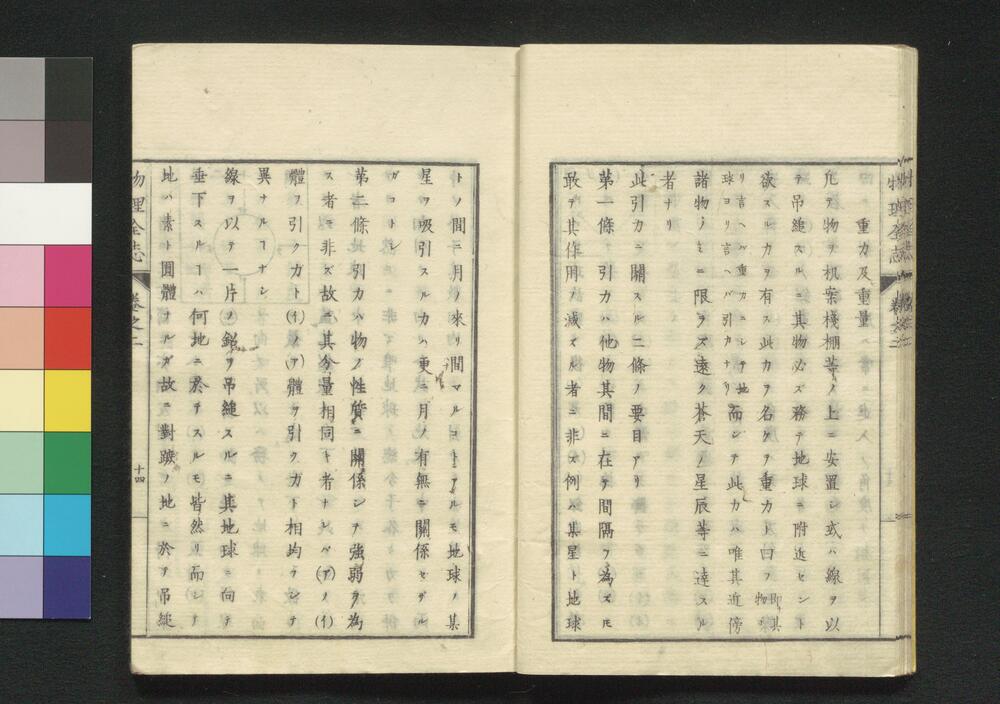 重力及重量
凡テ物ヲ机案棧棚等ノ上ニ安置シ或ハ線ヲ以
テ吊縋スルニ其物必ズ務テ地球ニ附近セント
欲スル力ヲ有ス此力ヲ名ケテ重力ト曰フ即其物
リ言ヘバ重力ニシテ地球ヨリ言ヘバ引力ナリ而シテ此力ハ唯其近傍
諸物ノミニ限ラズ遠ク蒼天ノ星辰等ニ達スル
者ナリ
此引力ニ關スル二條ノ要目アリ
第一條 引力ハ他物其間ニ在テ間隔ヲ為スモ
敢テ其作用ヲ滅ズル者ニ非ズ例ハ某星ト地球
トノ間ニ月ノ來リ間マルコトアルモ地球ノ某
星ヲ吸引スル力ハ更ニ月ノ有無ニ關係セザル
ガコトシ
第二條 引力ハ物ノ性質ニ關係シテ強弱ヲ為
ス者ニ非ズ故ニ其分量相同ト者ナレバ(ア)ノ(イ)
體ヲ引ク力ト(イ)ノ(ア)體ヲ引ク力ト相均ウシテ
異ナルヿナシ
線ヲ以テ一片ノ鉛ヲ吊縋スルニ其地球ニ向テ
垂下スルヿハ何地ニ於テスルモ皆然リ而シテ
地ハ素ト圓體ナルガ故ニ對蹠ノ地ニ於テ吊縋
物理全志
卷之二
十四